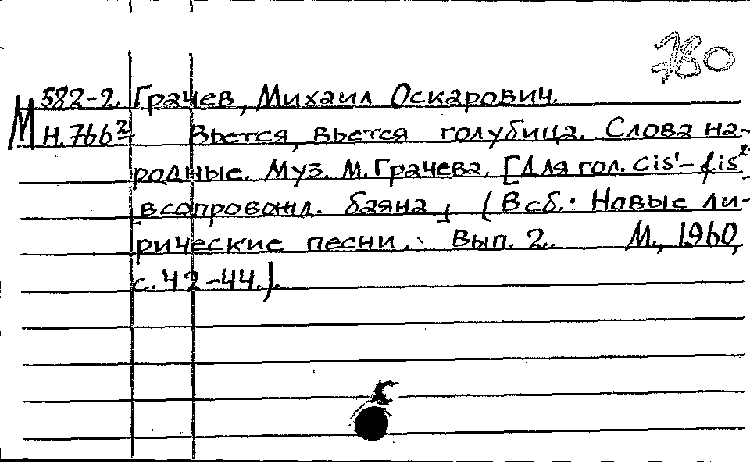 780
М 582-2. Грачев, Михаил Оскарович.
Н.766² Вьется, вьется голубица. Слова на-
родные. Муз. М. Грачева. [Для гол. cis'-fis²
в сопровожд. баяна], (В сб.: Новые ли-
рические песни. Вып. 2. М., 1960,
с. 42-44.).